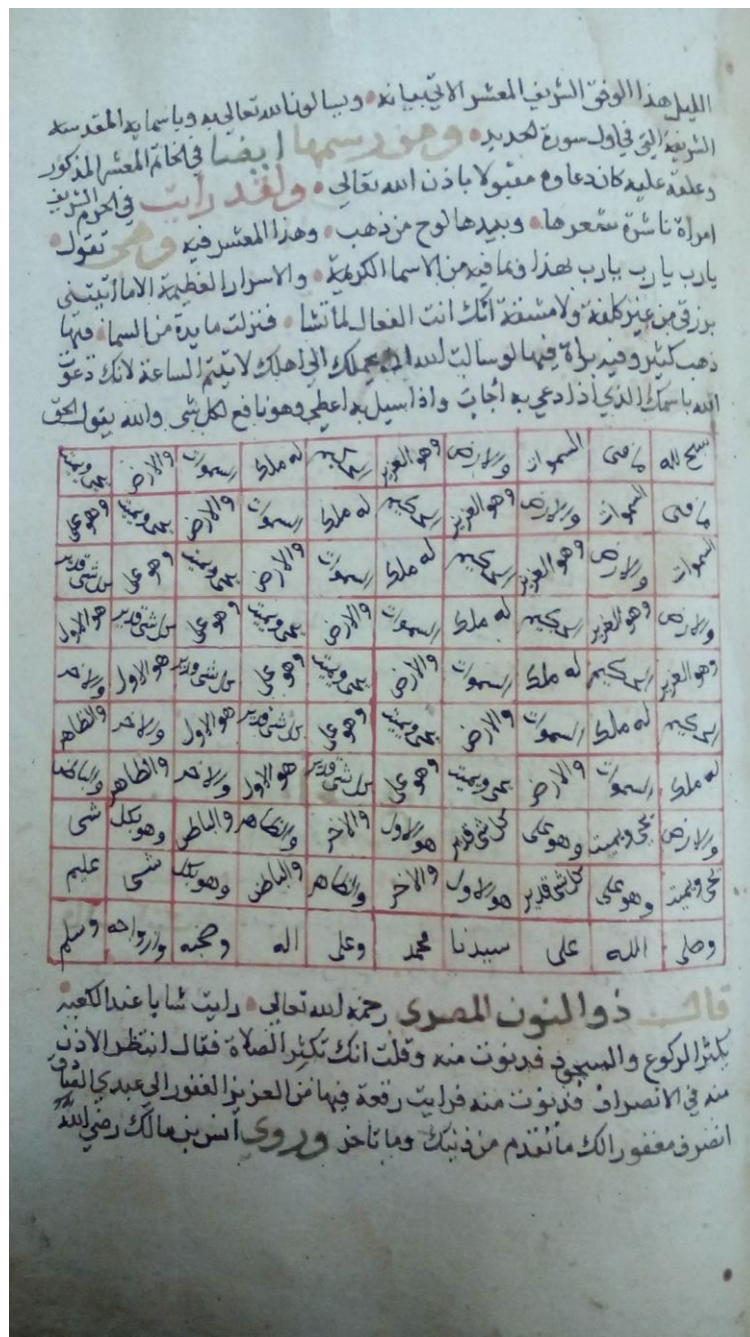 الليل هذا الوفق الشريف المعشر الاتي بيانه ويسالون الله تعالى به وباسمايه المقدسة
الشريفة التي في اول سورة الحديد وهو رسمها ايضا في الخاتم المعشر المذكور
وعلقه عليه كان دعاوه مقبولا باذن الله تعالى ولقد رايت في الحرم الشريف
امراة ناشرة شعرها وبيدها لوح من ذهب وهذا المعشر فيه وهي تقول
يارب يارب يارب بهذا وبما فيه من الاسما الكريمة والاسرار العظيمة الا ما اتيتني
برزقي من غير كلفة ولا مشقة انك انت الفعال لما تشا فنزلت مايدة من السما فيها
ذهب كثير وفيه براة فيها لو سالت الله ان يحملك الى اهلك لا يقيم الساعة لانك دعوت
الله باسمك الذي اذا دعي به اجاب واذا سيل به اعطي وهو نافع لكل شي والله يقول الحق
سبح لله ما في السموات والارض وهو العزيز الحكيم له ملك السموات والارض يحي ويميت
ما في السموات والارض وهو العزيز الحكيم له ملك السموات والارض يحي ويميت وهو على
السموات والارض وهو العزيز الحكيم له ملك السموات والارض يحي ويميت وهو على كل شي قدير
والارض وهو العزيز الحكيم له ملك السموات والارض يحي ويميت وهو على كل شي قدير هو الاول
وهو العزيز الحكيم له ملك السموات والارض يحي ويميت وهو على كل شي قدير هو الاول والاخر
الحكيم له ملك السموات والارض يحي ويميت وهو على كل شي قدير هو الاول والاخر والظاهر
له ملك السموات والارض يحي ويميت وهو على كل شي قدير هو الاول والاخر والظاهر والباطن
والارض يحي ويميت وهو على كل شي قدير هو الاول والاخر والظاهر والباطن وهو بكل شي
يحي ويميت وهو على كل شي قدير هو الاول والاخر والظاهر والباطن وهو بكل شي عليم
وصلى الله على سيدنا محمد وعلى اله وصحبه وازواجه وسلم
قال ذو النون المصرى رحمه الله تعالى رايت شابا عند الكعبة
يكثر الركوع والسجود فدنوت منه وقلت انك تكثر الصلاة فقال انتظر الاذن
منه في الانصراف فدنوت منه فرايت رقعة فيها من العزيز الغفور الى عبدي
انصرف مغفورا لك ما تقدم من ذنبك وما تاخر وروى انس بن مالك رضي الله